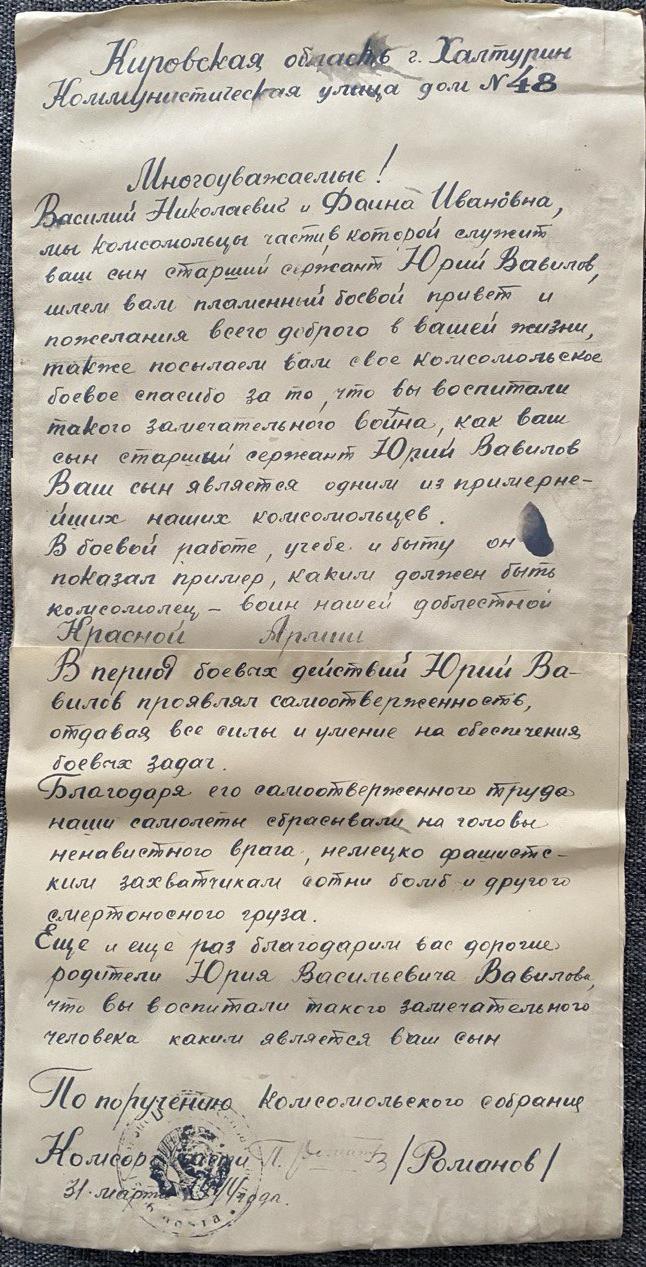 Кировская область г. Халтурин
Коммунистическая улица дом №48
Многоуважаемые!
Василий Николаевич и Фаина Ивановна,
мы комсомольцы части в которой служит
ваш сын старший сержант Юрий Вавилов,
шлем вам пламенный боевой привет и
пожелания всего доброго в вашей жизни,
также посылаем вам свое комсомольское
боевое спасибо за то, что вы воспитали
такого замечательного война, как ваш
сын старший сержант Юрий Вавилов
Ваш сын является одним из примерне-
йших наших комсомольцев.
В боевой работе, учебе и быту он
показал пример, каким должен быть
комсомолец – воин нашей доблестной
Красной Армии
В период боевых действий Юрий Ва-
вилов проявлял самоотверженность,
отдавая все силы и умение на обеспечения
боевых задач.
Благодаря его самоотверженного труда
наши самолеты сбрасывали на головы
ненавистного врага, немецко фашистс-
ким захватчикам сотни бомб и другого
смертоносного груза.
Еще и еще раз благодарим вас дорогие
родители Юрия Васильевича Вавилова,
что вы воспитали такого замечательного
человека каким является ваш сын
По поручению комсомольского собрания
Комсорг части /Романов/
31 марта года.
почта